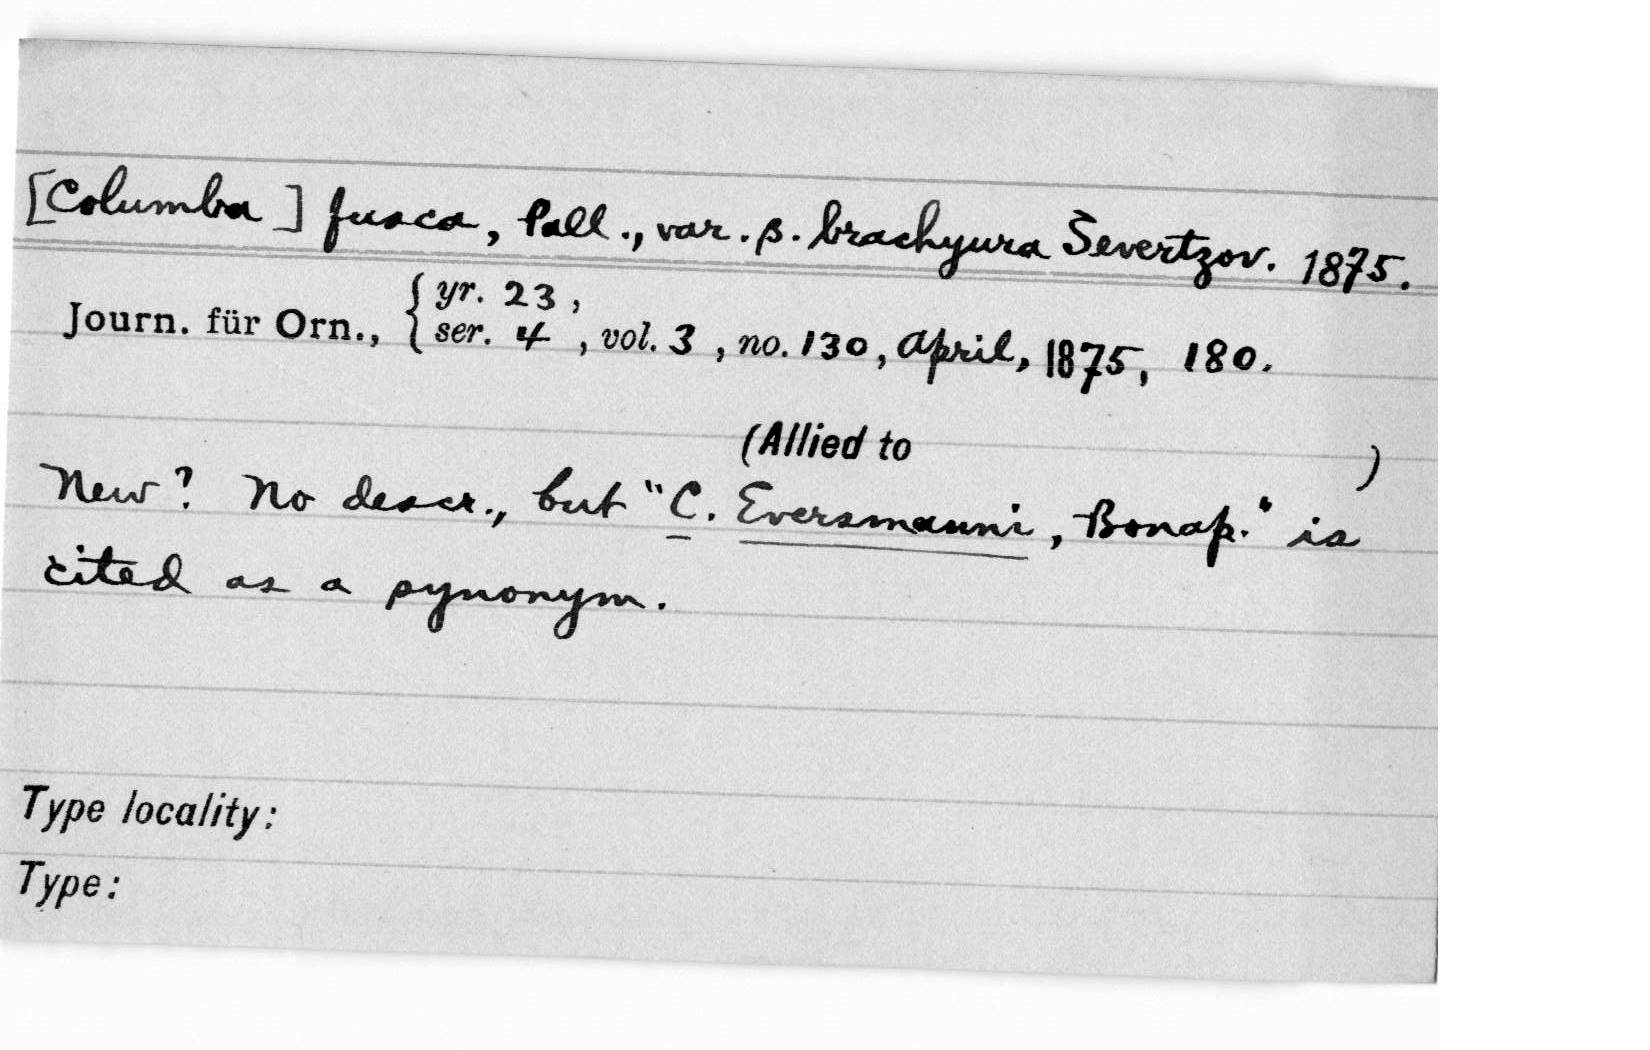 [Columba] fusca, Pall., var. β. brachyura Severtzov. 1875.
Journ. für Orn., { yr. 23,
ser. 4, vol. 3, no. 130, April, 1875, 180.
(Allied to )
New? No descr., but "C. Eversmanni, Bonap." is
cited as a synonym.
Type locality:
Type: